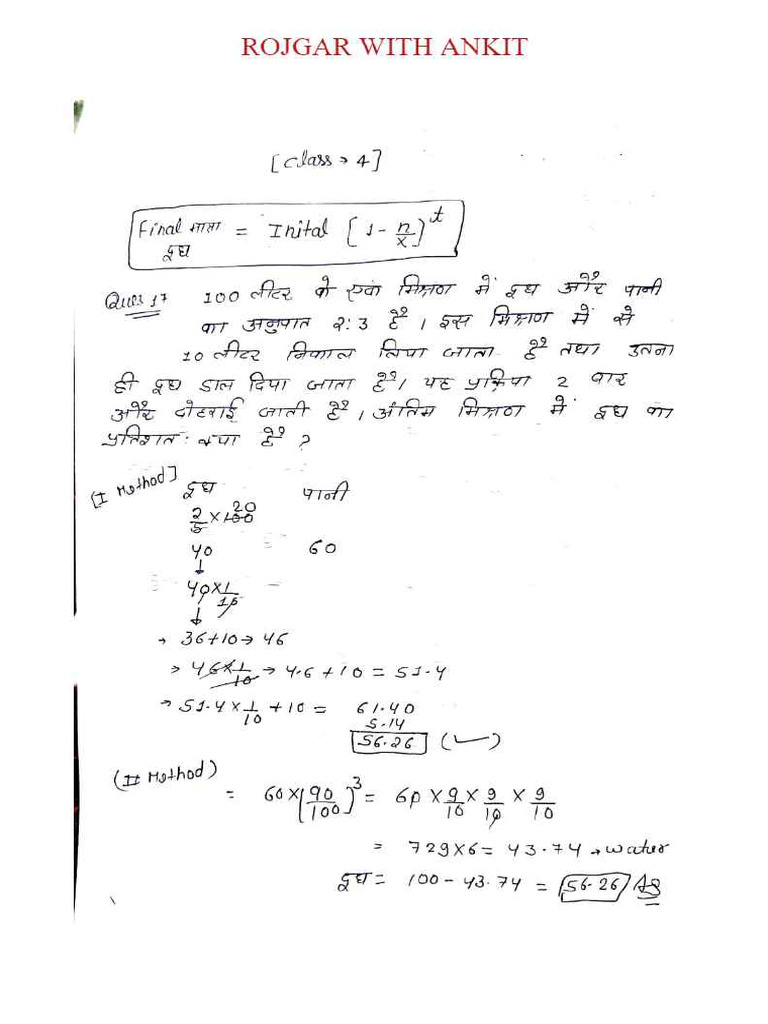 ROJGAR WITH ANKIT
[Class → 4]
Final मात्रा दूध = Inital [1 - n/x]^t
Ques 17 100 लीटर के एक मिश्रण में दूध और पानी
का अनुपात २:3 है । इस मिश्रण में से
10 लीटर निकाल लिया जाता है तथा उतना
ही दूध डाल दिया जाता है। यह प्रक्रिया 2 बार
और दोहराई जाती है । अंतिम मिश्रण में दूध का
प्रतिशत: क्या है ?
[I Method]
दूध पानी
2/5 × 100 20
40 60
↓
40 × 1/10
↓
→ 36 + 10 → 46
→ 46 × 1/10 → 4.6 + 10 = 51.4
→ 51.4 × 1/10 + 10 = 61.40
5.14
56.26 (✓)
(II Method)
= 60 × (90/100)^3 = 60 × 9/10 × 9/10 × 9/10
= 729 × 6 = 43.74 → water
दूध = 100 - 43.74 = 56.26 As